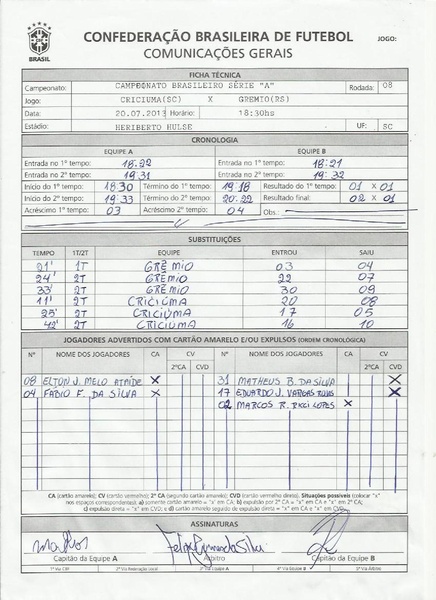 CBF
BRASIL
CONFEDERAÇÃO BRASILEIRA DE FUTEBOL
COMUNICAÇÕES GERAIS
JOGO:
FICHA TÉCNICA
Campeonato: CAMPEONATO BRASILEIRO SÉRIE "A" Rodada: 08
Jogo: CRICIUMA(SC) X GREMIO(RS)
Data: 20.07.2013 Horário: 18:30hs
Estádio: HERIBERTO HULSE UF: SC
CRONOLOGIA
EQUIPE A EQUIPE B
Entrada no 1º tempo: 18:22 Entrada no 1º tempo: 18:21
Entrada no 2º tempo: 19:31 Entrada no 2º tempo: 19:32
Início do 1º tempo: 18:30 Término do 1º tempo: 19:18 Resultado do 1º tempo: 01 X 01
Início do 2º tempo: 19:33 Término do 2º tempo: 20:22 Resultado final: 02 X 01
Acréscimo 1º tempo: 03 Acréscimo 2º tempo: 04 Obs.:
SUBSTITUIÇÕES
TEMPO 1T/2T EQUIPE ENTROU SAIU
21' 1T GRÊMIO 03 04
24' 2T GRÊMIO 22 07
33' 2T GRÊMIO 30 09
11' 2T CRICIÚMA 20 08
25' 2T CRICIÚMA 17 05
42' 2T CRICIÚMA 16 10
JOGADORES ADVERTIDOS COM CARTÃO AMARELO E/OU EXPULSOS (ORDEM CRONOLÓGICA)
Nº NOME DOS JOGADORES CA CV Nº NOME DOS JOGADORES CA CV
2ªCA CVD 2ªCA CVD
08 ELTON J. MELO ATAIDE X 31 MATHEUS B. DA SILVA X
04 FABIO F. DA SILVA X 17 EDUARDO J. VARGAS ROJAS X
02 MARCOS R. RICCI LOPES X
CA (cartão amarelo); CV (cartão vermelho); 2ª CA (segundo cartão amarelo); CVD (cartão vermelho direto). Situações possíveis (colocar "x"
nos espaços correspondentes): a) somente cartão amarelo = "x" em CA; b) expulsão por 2º CA = "x" em CA e "x" em 2ª CA;
c) expulsão direta = "x" em CVD; e d) cartão amarelo seguido de expulsão direta = "x" em CA e "x" em CVD.
ASSINATURAS
Capitão da Equipe A Árbitro Capitão da Equipe B